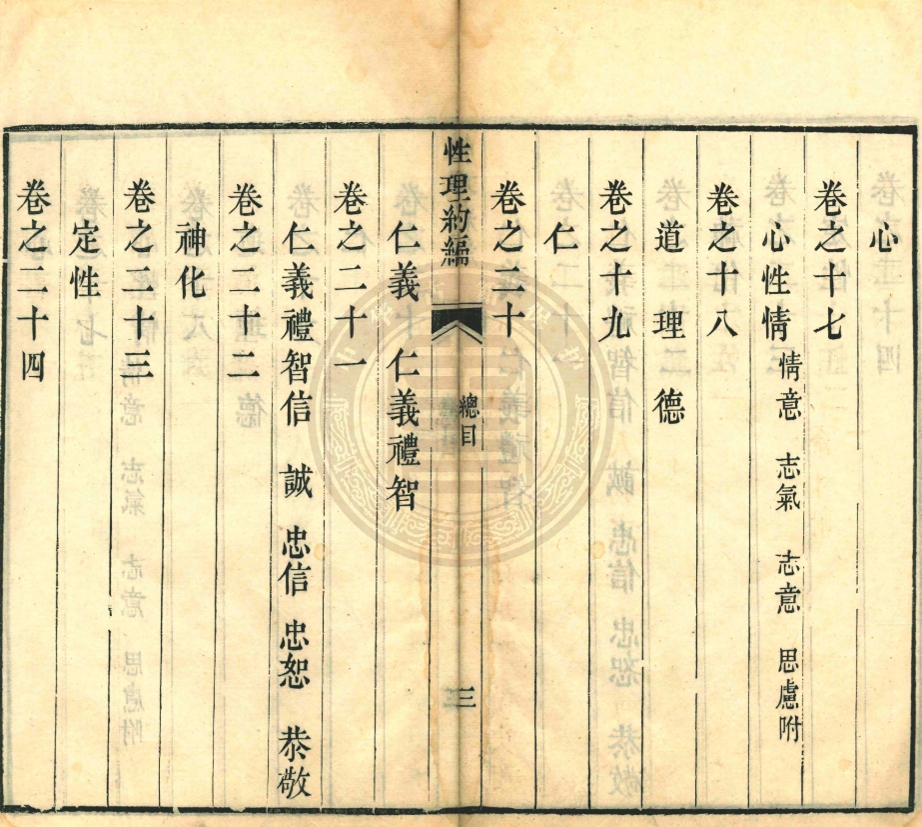 心
卷之十七
心性情 情意 志氣 志意 思慮附
卷之十八
道 理 德
卷之十九
仁
卷之二十
性理約編 總目 三
仁義 仁義禮智
卷之二十一
仁義禮智信 誠 忠信 忠恕 恭敬
卷之二十二
神化
卷之二十三
定性
卷之二十四